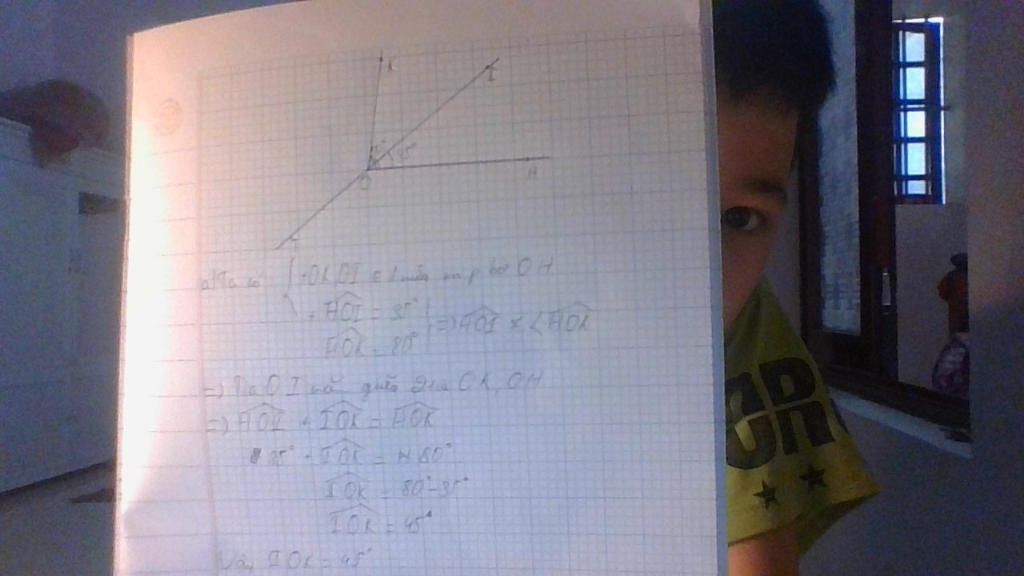 K
I
35°
O
H
a) Ta có OK, OI ∈ 1 nửa mp bờ OH
+ HOI = 35°
HOK = 80°
=> HOI < HOK
=> Tia OI nằm giữa 2 tia OK, OH
=> HOI + IOK = HOK
35° + IOK = 80°
IOK = 80° - 35°
IOK = 45°
Vậy IOK = 45°
OR